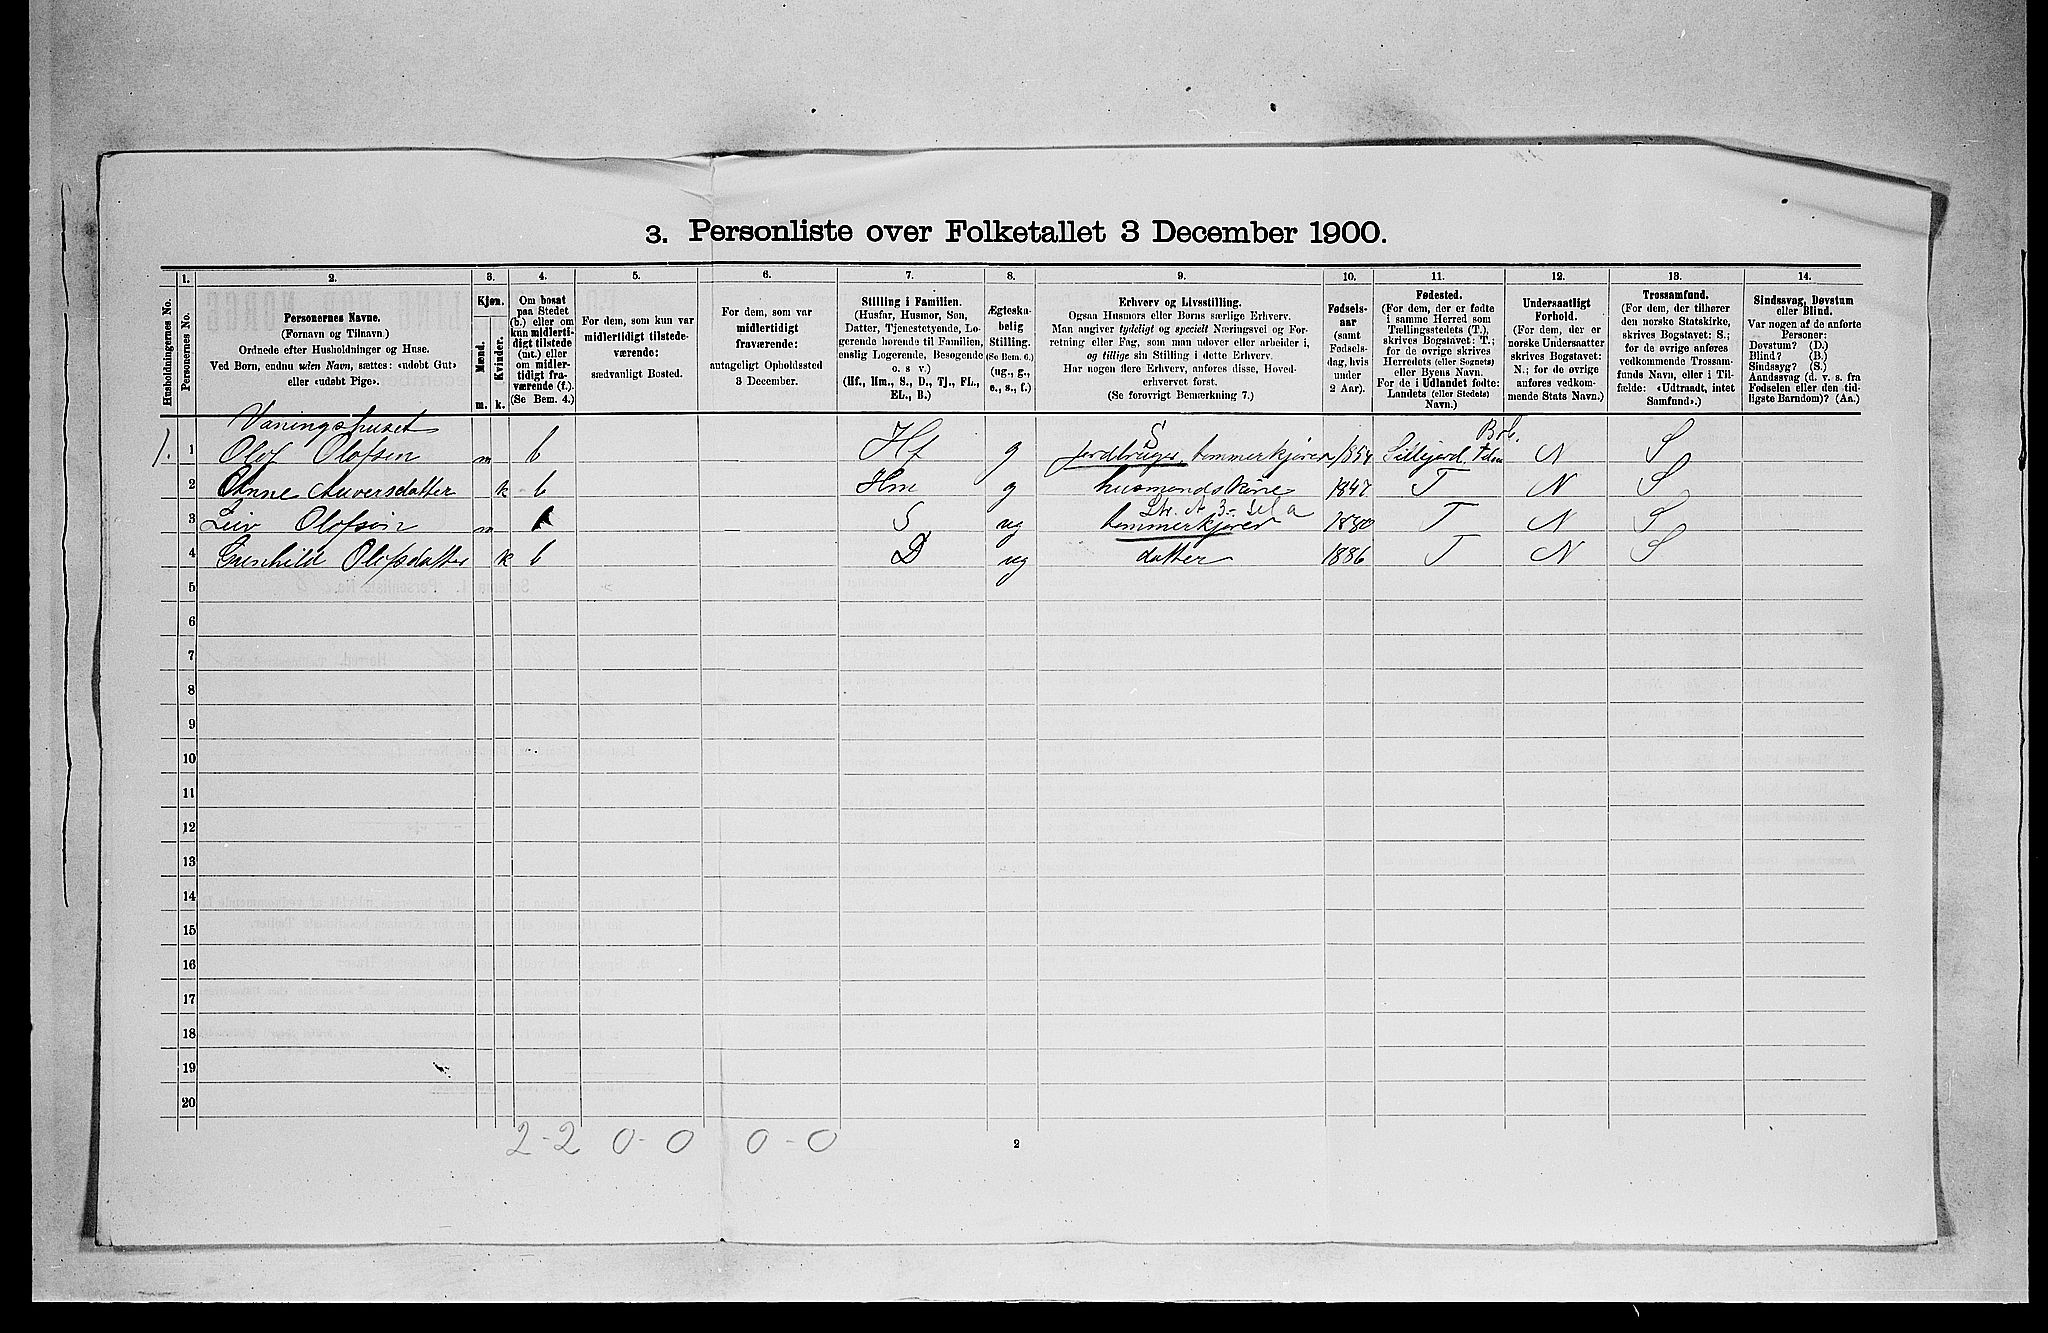 3. Personliste over Folketallet 3 December 1900.
1. 2. 3. 4. 5. 6. 7. 8. 9. 10. 11. 12. 13. 14.
Husholdningernes No.
Personernes No.
Personernes Navne.
(Fornavn og Tilnavn.)
Ordnede efter Husholdninger og Huse.
Ved Børn, endnu uden Navn, sættes: «udøbt Gut»
eller «udøbt Pige».
Kjøn.
Mænd.
Kvinder.
m. k.
Om bosat
paa Stedet
(b.) eller om
kun midlerti-
digt tilstede
(mt.) eller
om midler-
tidigt fra-
værende (f.).
(Se Bem. 4.)
For dem, som kun var
midlertidigt tilstede-
værende:
sædvanligt Bosted.
For dem, som var
midlertidigt
fraværende:
antageligt Opholdssted
3 December.
Stilling i Familien.
(Husfar, Husmor, Søn,
Datter, Tjenestetyende, Lo-
gerende hørende til Familien,
enslig Logerende, Besøgende
o. s v.)
(Hf., Hm., S., D., Tj., FL.,
EL., B.)
Ægteska-
belig
Stilling.
(Se Bem. 6.)
(ug., g.,
e., s., f.)
Erhverv og Livsstilling.
Ogsaa Husmors eller Børns særlige Erhverv.
Man angiver tydeligt og specielt Næringsvei og For-
retning eller Fag, som man udøver eller arbeider i,
og tillige sin Stilling i dette Erhverv.
Har nogen flere Erhverv, anføres disse, Hoved-
erhvervet først.
(Se forøvrigt Bemærkning 7.)
Fødsels-
aar
(samt
Fødsels-
dag, hvis
under
2 Aar).
Fødested.
(For dem, der er fødte
i samme Herred som
Tællingsstedets (T.),
skrives Bogstavet: T.;
for de øvrige skrives
Herredets (eller Sognets)
eller Byens Navn.
For de i Udlandet fødte:
Landets (eller Stedets)
Navn.)
Undersaatligt
Forhold.
(For dem, der er
norske Undersaatter
skrives Bogstavet:
N.; for de øvrige
anføres vedkom-
mende Stats Navn.)
Trossamfund.
(For dem, der tilhører
den norske Statskirke,
skrives Bogstavet: S.;
for de øvrige anføres
vedkommende Trossam-
funds Navn, eller i Til-
fælde: «Udtraadt, intet
Samfund».)
Sindssvag, Døvstum
eller Blind.
Var nogen af de anførte
Personer:
Døvstum? (D.)
Blind? (B.)
Sindssyg? (S.)
Aandssvag (d. v. s. fra
Fødselen eller den tid-
ligste Barndom)? (Aa.)
Vaningshuset
1. 1 Olof Olofsen m b Hf g S jordbruger, tommerkjører 1854 Sillejord Brb. N S
2 Anne Auversdatter k b Hm g husmandskone 1847 T N S
3 Leiv Olofsøn m b S ug tommerkjører 1880 T N S
4 Gunhild Olofsdatter k b D ug datter 1886 T N S
5
6
7
8
9
10
11
12
13
14
15
16
17
18
19
20
2 - 2 0 - 0 0 - 0
2